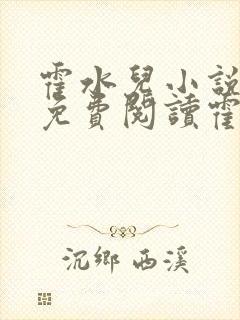 霍水兒小說
免費閱讀霍
沉鄉 西溪